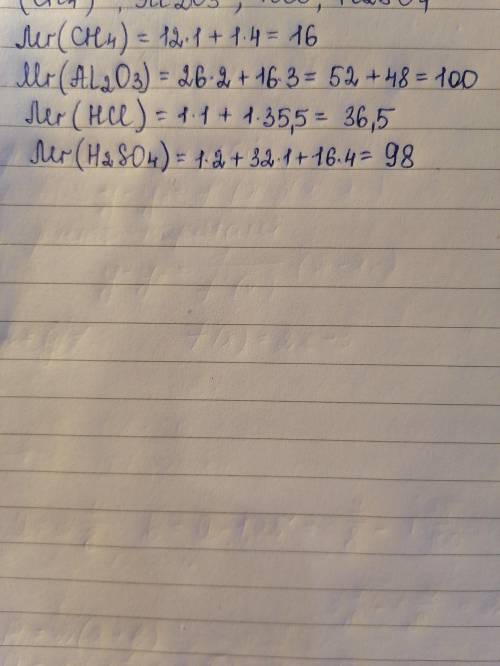 Mr(CH4) = 12·1 + 1·4 = 16
Mr(Al2O3) = 26·2 + 16·3 = 52 + 48 = 100
Mr(HCl) = 1·1 + 1·35,5 = 36,5
Mr(H2SO4) = 1·2 + 32·1 + 16·4 = 98